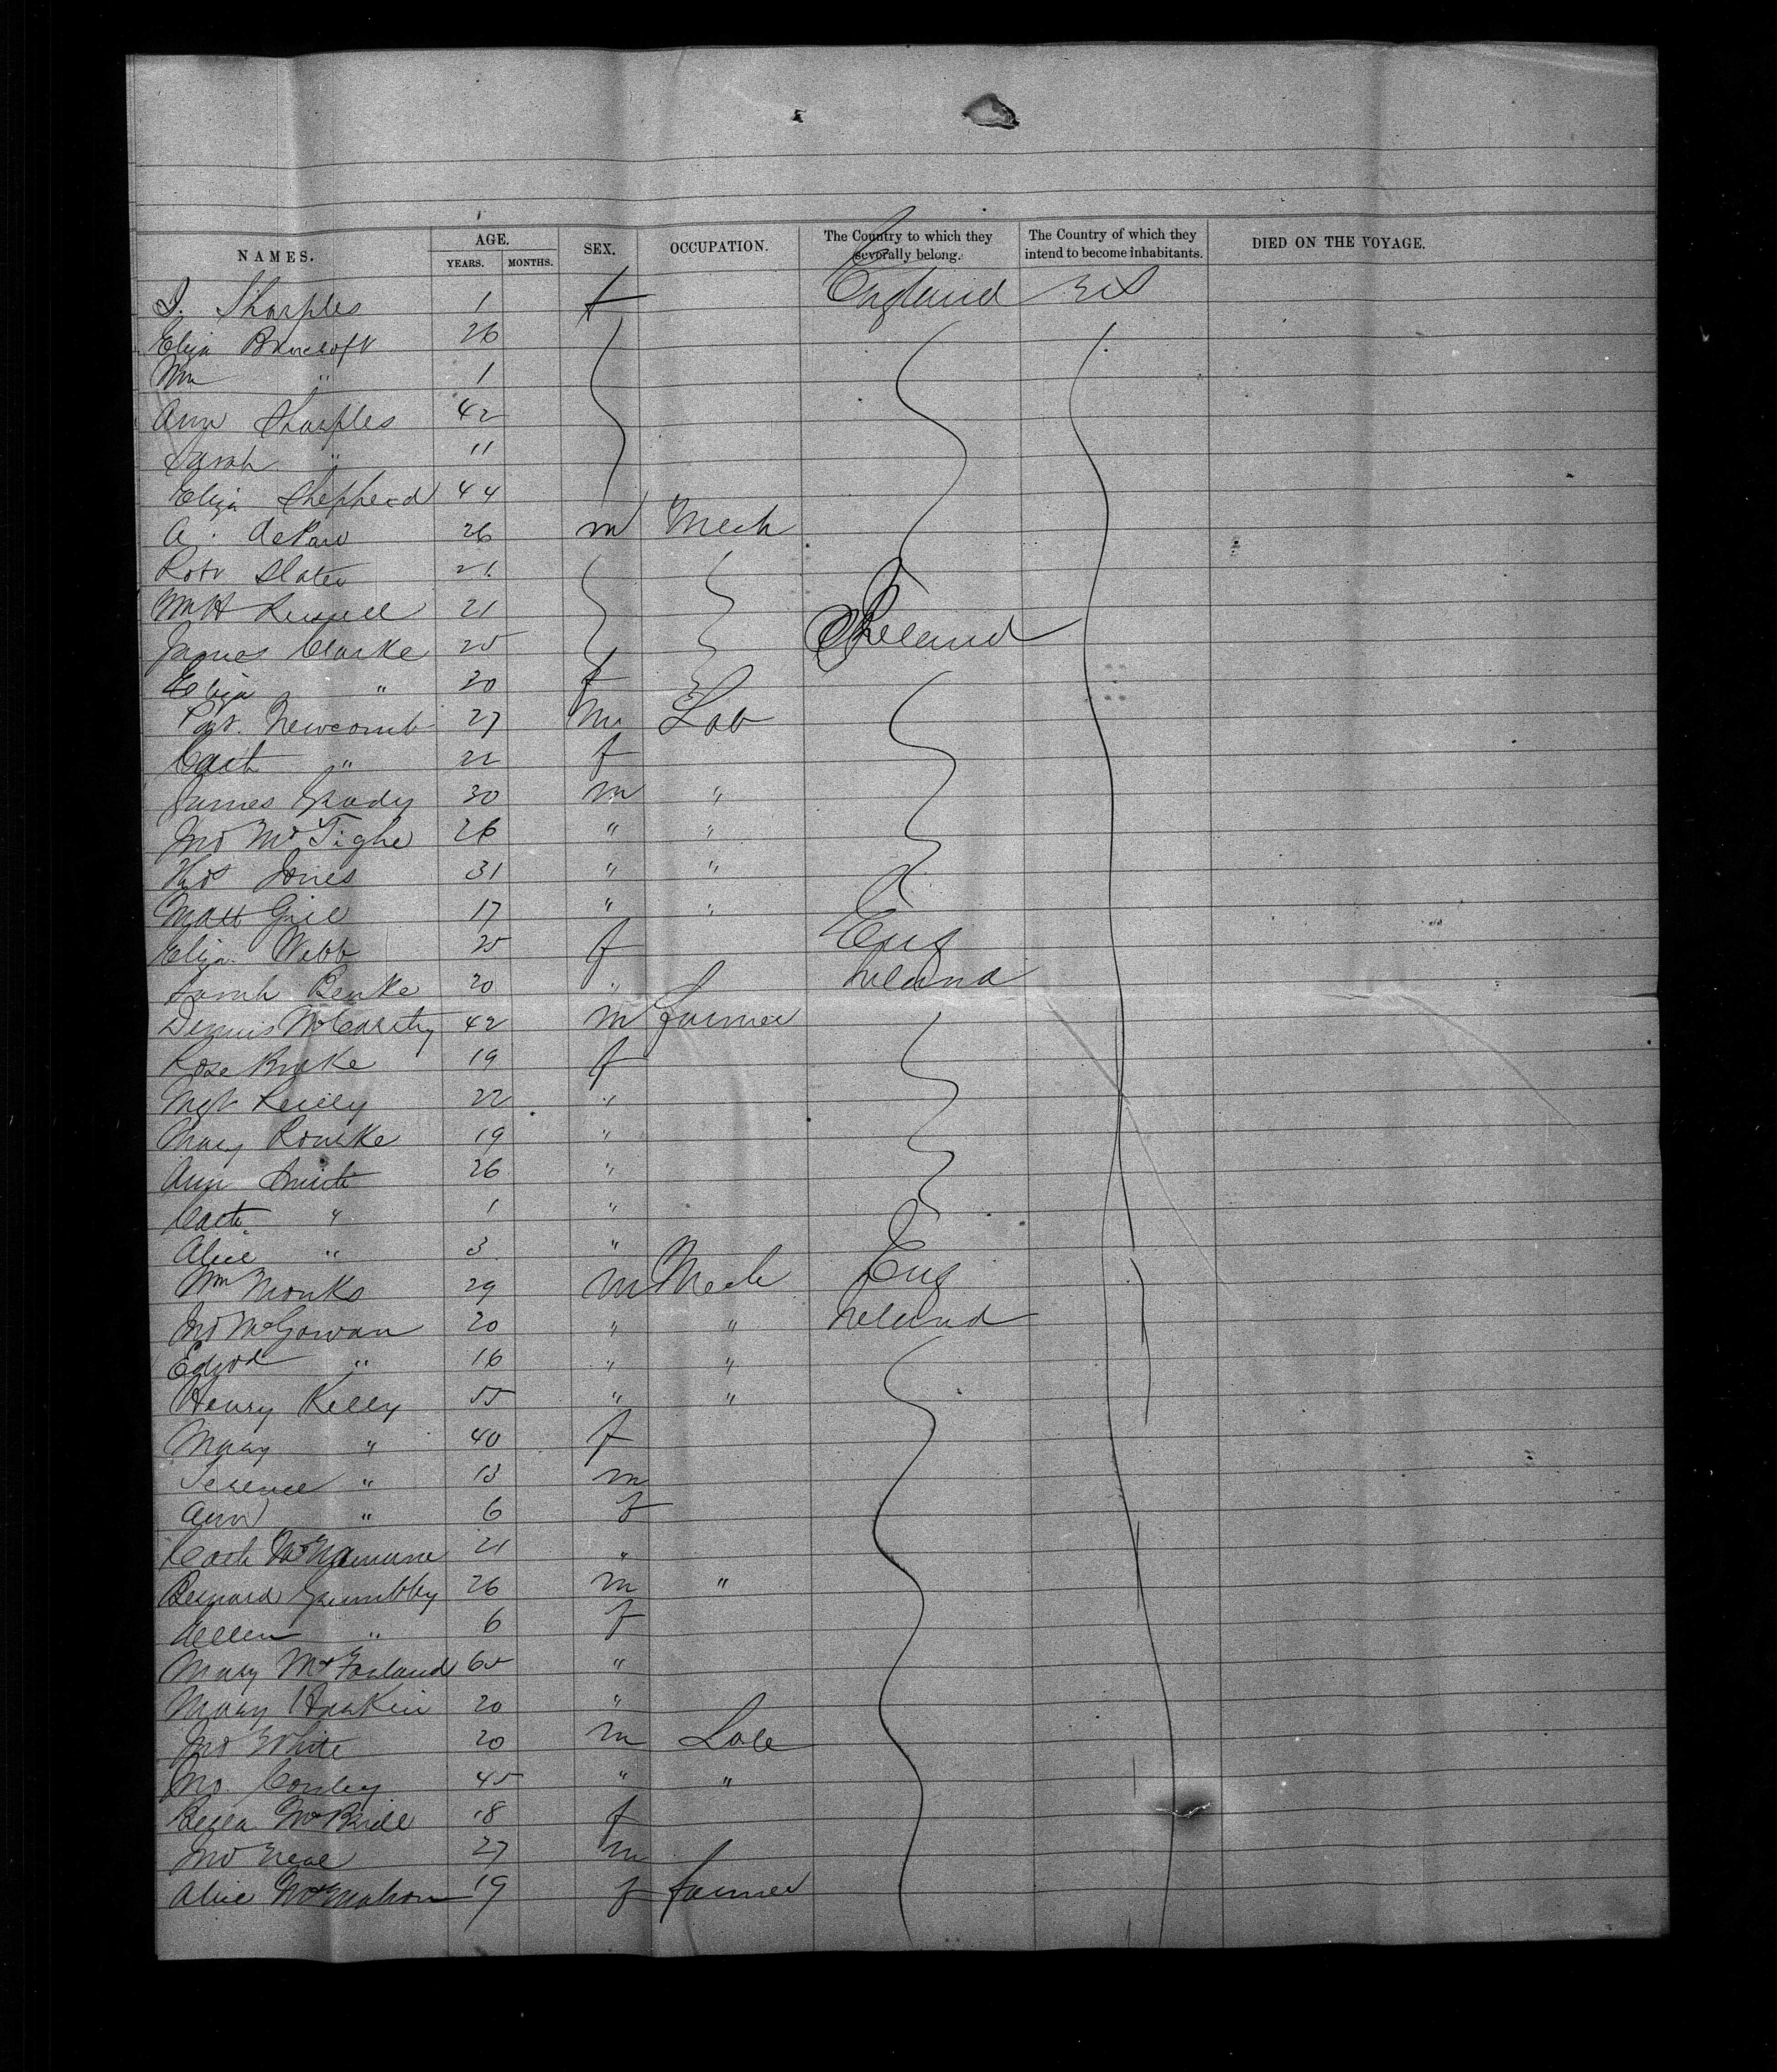 NAMES. AGE. YEARS. MONTHS. SEX. OCCUPATION. The Country to which they severally belong. The Country of which they intend to become inhabitants. DIED ON THE VOYAGE.
I. Sharples 1 f England U S
Eliza Bancroft 26
Wm " 1
Ann Sharples 42
Sarah " 11
Eliza Shepherd 44
A. 26 m Mech
Robt Slater 21
Wm H Russell 21 Ireland
James Clarke 25
Eliza " 20 f
Pat. Newcomb 27 m Lab
Cath " 22 f
James Grady 30 m "
Jno McTighe 26 " "
Thos Jones 31 " "
Matt Gill 17 " "
Eliza Webb 25 f Eng
Sarah Burke 20 " Ireland
Dennis McCarthy 42 m farmer
Rose Burke 19 f
Mgt Reilly 22 "
Mary Rourke 19 "
Ann Smith 26 "
Cath " 1 "
Alice " 3 "
Wm Monks 29 m Mech Eng
Jno McGowan 20 " " Ireland
Edwd " 16 " "
Henry Kelly 55 " "
Mary " 40 f
Terence " 13 m
Ann " 6 f
Cath McNamara 21 "
Bernard 26 m "
Ellen " 6 f
Mary McFarland 65 "
Mary 20 "
Jno White 20 m Lab
Jno. Conley 45 " "
McBride 18 f
Jno Neal 27 m
Alice McMahon 19 f farmer